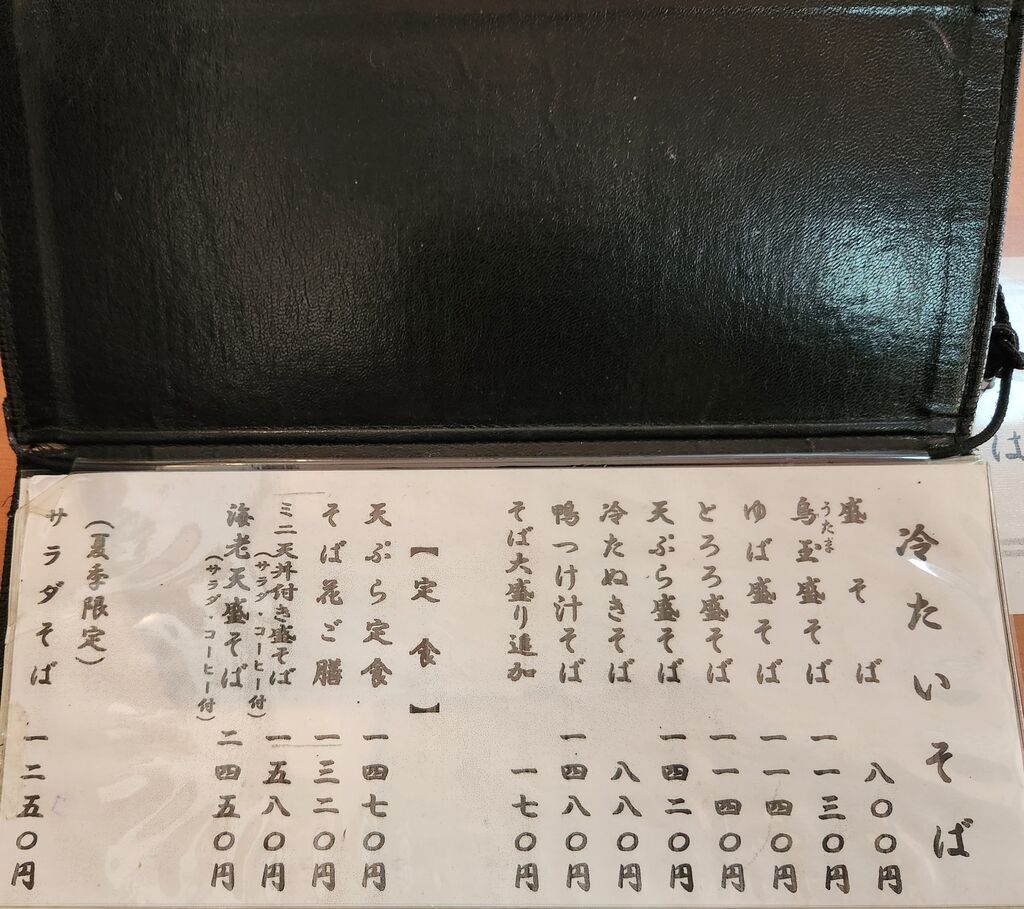 冷たいそば
盛そば 八〇〇円
うたま
烏玉盛そば 一一三〇円
ゆば盛そば 一一四〇円
とろろ盛そば 一一四〇円
天ぷら盛そば 一四二〇円
冷たぬきそば 八八〇円
鴨つけ汁そば 一四八〇円
そば大盛り追加 一七〇円
【定食】
天ぷら定食 一四七〇円
そば花ご膳 一三二〇円
ミニ天丼付き盛そば 一五八〇円
(サラダ・コーヒー付)
海老天盛そば 二四五〇円
(サラダ・コーヒー付)
(夏季限定)
サラダそば 一二五〇円
は